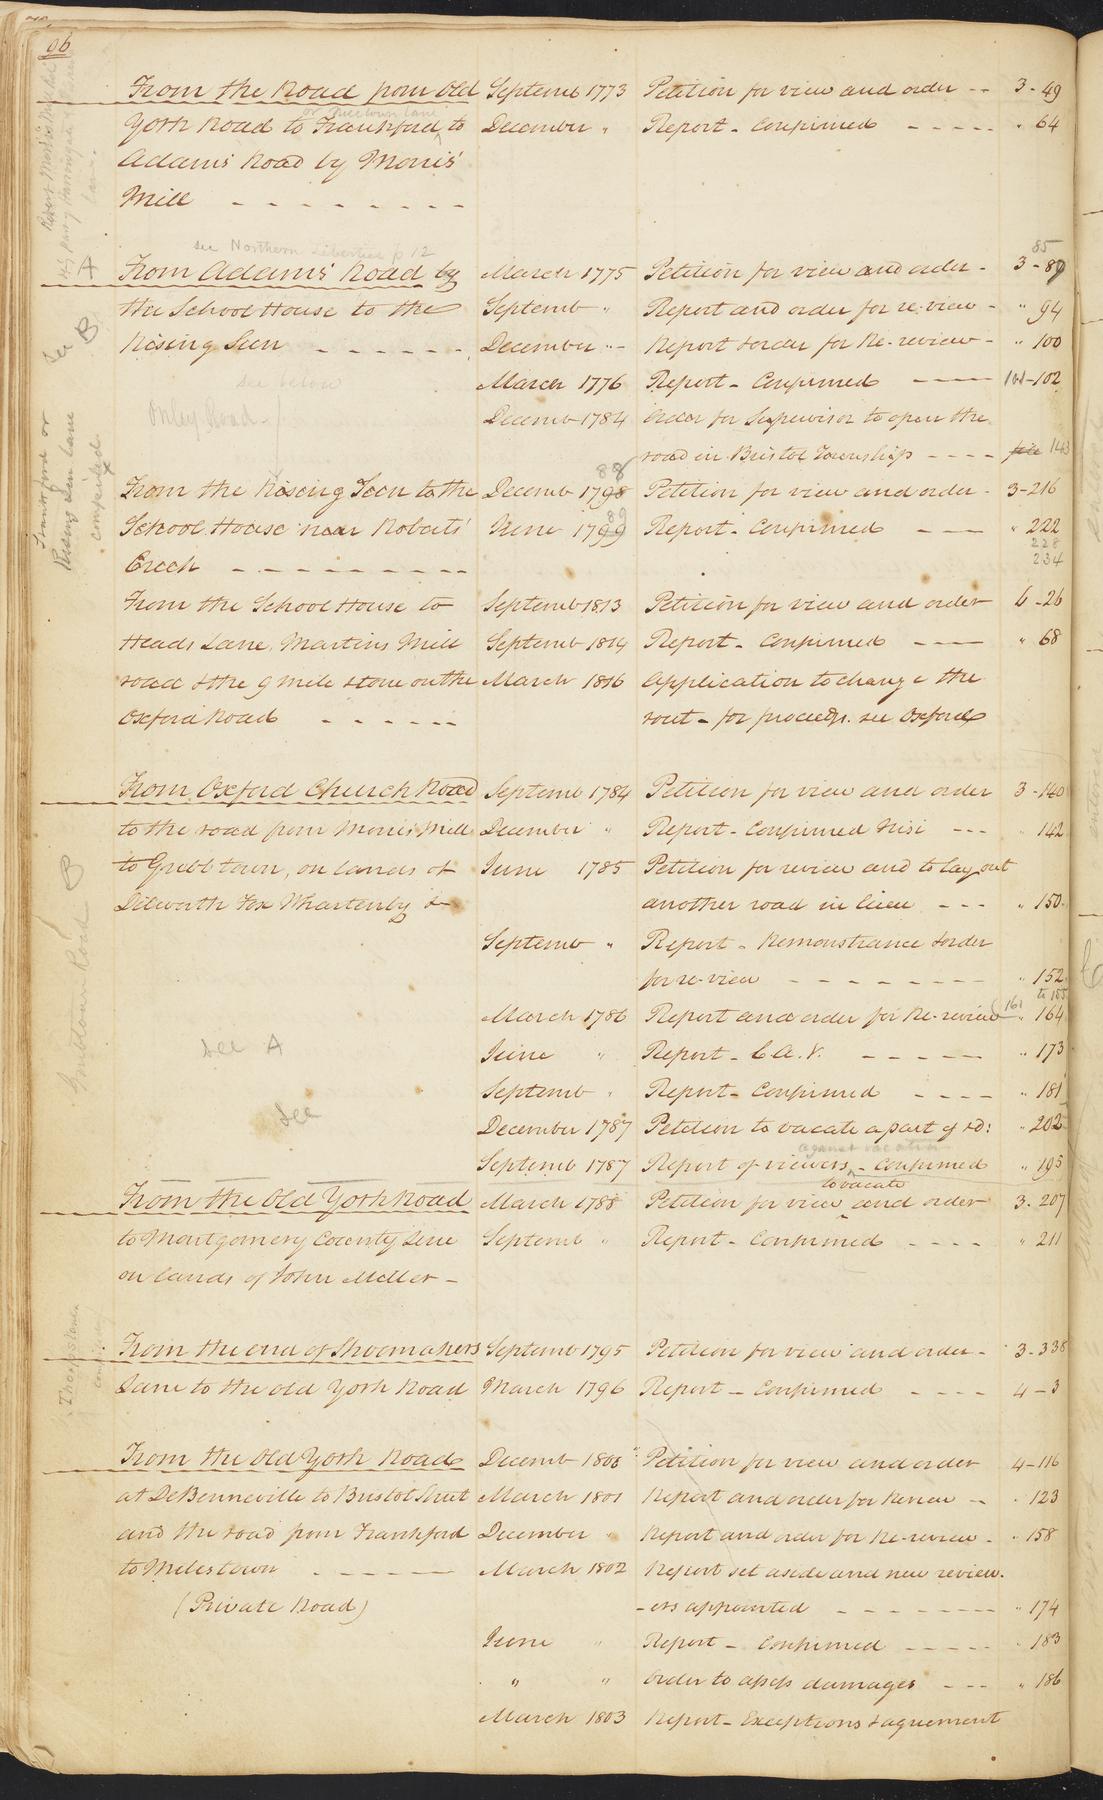 96
From the Road from Old Septemb 1773 Petition for view and order -- 3-49
York Road to Frankford, to December " Report - Confirmed - - - - - " 64
Adams' Road by Morris'
Mill - - - - - - - - -
see Northern Liberties p 12
85
A
From Adams' Road by March 1775 Petition for view and order - 3-87
the School House to the Septemb " Report and order for re-view - " 94
Rising Sun - - - - - - December " - Report & order for Re-review - " 100
See B
see below March 1776 Report - Confirmed ---- 101-102
Onley Road - Decemb 1784 Order for Supervisor to open the
road in Bristol Township ---- 143
88
From the Rising Sun to the Decemb 1798 Petition for view and order - 3-216
89
School House near Roberts' June 1799 Report - Confirmed --- " 222
228
Creek - - - - - - - - - 234
Frankford or
Rising Sun lane
From the School House to Septemb 1813 Petition for view and order 6-26
Heads Lane, Martins Mill Septemb 1814 Report - Confirmed --- " 68
road & the 9 mile stone on the March 1816 Application to change the
Oxford Road - - - - - - rout - for proceeds. see Oxford
From Oxford Church Road Septemb 1784 Petition for view and order 3-140
to the road from Morris' Mill December " Report - Confirmed Nisi --- " 142
to Grubbtown, on lands of June 1785 Petition for review and to lay out
Dilworth Fox Whartenby & another road in lieu --- " 150
B
Septemb " Report - Remonstrance & order
for re-view - - - - - - - - " 152
to 155
March 1786 Report and order for Re-review 161 " 164
see A June " Report - C.A.V. - - - - - " 173
Septemb " Report - Confirmed ---- " 181
see
December 1787 Petition to vacate a part of sd: " 202
against vacation
Septemb 1787 Report of viewers - Confirmed " 195
to vacate
From the Old York Road March 1788 Petition for view and order 3-207
to Montgomery County Line Septemb " Report - Confirmed - - - - " 211
on lands of John Miller -
From the end of Shoemakers Septemb 1795 Petition for view and order - 3-338
Lane to the old York Road March 1796 Report - Confirmed - - - - 4-3
From the Old York Road Decemb 1800 Petition for view and order 4-116
at DeBenneville to Bristol Street March 1801 Report and order for Review -- " 123
and the road from Frankford December " Report and order for Re-review - " 158
to Milestown - - - - - - March 1802 Report set aside and new review.
(Private Road) -ers appointed - - - - - - - - " 174
June " Report - Confirmed - - - - - " 183
" " Order to assess damages --- " 186
March 1803 Report - Exceptions & agreement